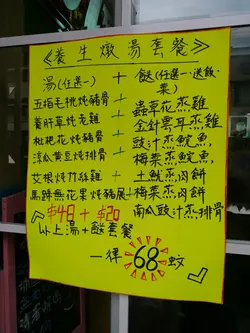 《養生燉湯套餐》
湯(任選一) + 餸(任選一送飯、菜)
五指毛桃炖豬骨 + 蟲草花蒸雞
養肝草炖老雞 + 金針雲耳蒸雞
枇杷花炖豬骨 + 豉汁蒸魷魚
涼瓜黃豆炖排骨 + 梅菜蒸鯇魚
艾根炖竹絲雞 + 土魷蒸肉餅
馬蹄無花果炖豬𦟌 + 梅菜蒸肉餅
『$48 + $20 南瓜豉汁蒸排骨
以上湯+餸套餐
一律 68 蚊』